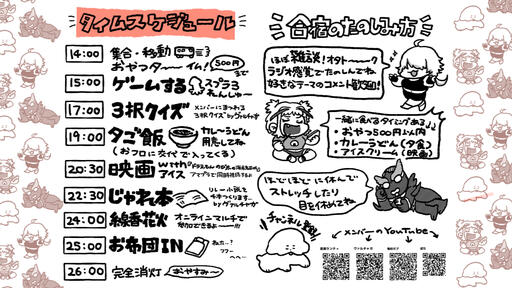 タイムスケジュール
14:00
集合・移動
おやつターイム!
500円まで
15:00
ゲームする
スプラ3
れんしゅー
17:00
3択クイズ
メンバーにまつわる
3択クイズ
19:00
夕ご飯
カレーうどん
用意してね
(おフロに交代で入ってくる)
20:30
映画
withアイス
22:30
じゃれ本
リレー小説を
24:00
線香花火
オンラインマルチで
25:00
お布団IN
26:00
完全消灯
おやすみー
合宿のたのしみ方
ほぼ雑談!オタトーク
ラジオ感覚でたのしんでね
好きなテーマのコメント歓迎!
一緒に食べるタイミングあるよ♪
・おやつ500円以内
・カレーうどん(夕食)
・アイスクリーム(映画)
ほどほどに休んで
ストレッチしたり
目を休めてね
チャンネル登録!
メンバーのYouTube